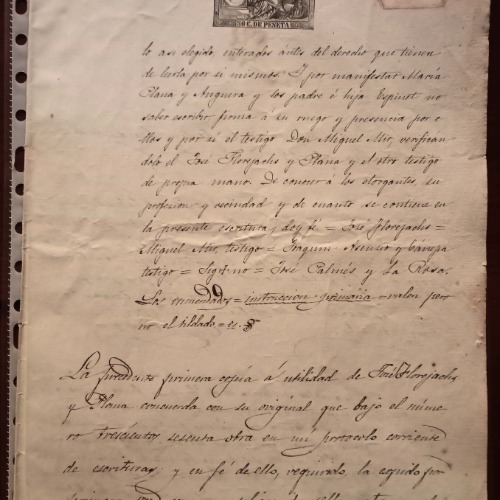 50 C. DE PESETA
lo así elegido, enterados ántes del derecho que tienen
de leerla por si mismos. Y por manifestar María
Plana y Anguera y los padre é hija Espinet no
saber escribir firma á su ruego y presencia por e
llos y por sí el testigo Don Miguel Mir, verifican
dolo el José Florejachs y Plana y el otro testigo
de propia mano. De conocer á los otorgantes, su
profesion y vecindad y de cuanto se contiene en
la presente escritura, doy fé = José Florejachs =
Miguel Mir, testigo = Joaquin Asensio y
testigo = Signo = José Palmés y La Rosa.
Los enmendados = instruccion = primaria = valen pero
no el tildado =
La precedente primera copia á utilidad de José Florejachs
y Plana concuerda con su original que bajo el núme
ro trescientos sesenta obra en mi protocolo corriente
de escrituras; y en fé de ello, requerido, la